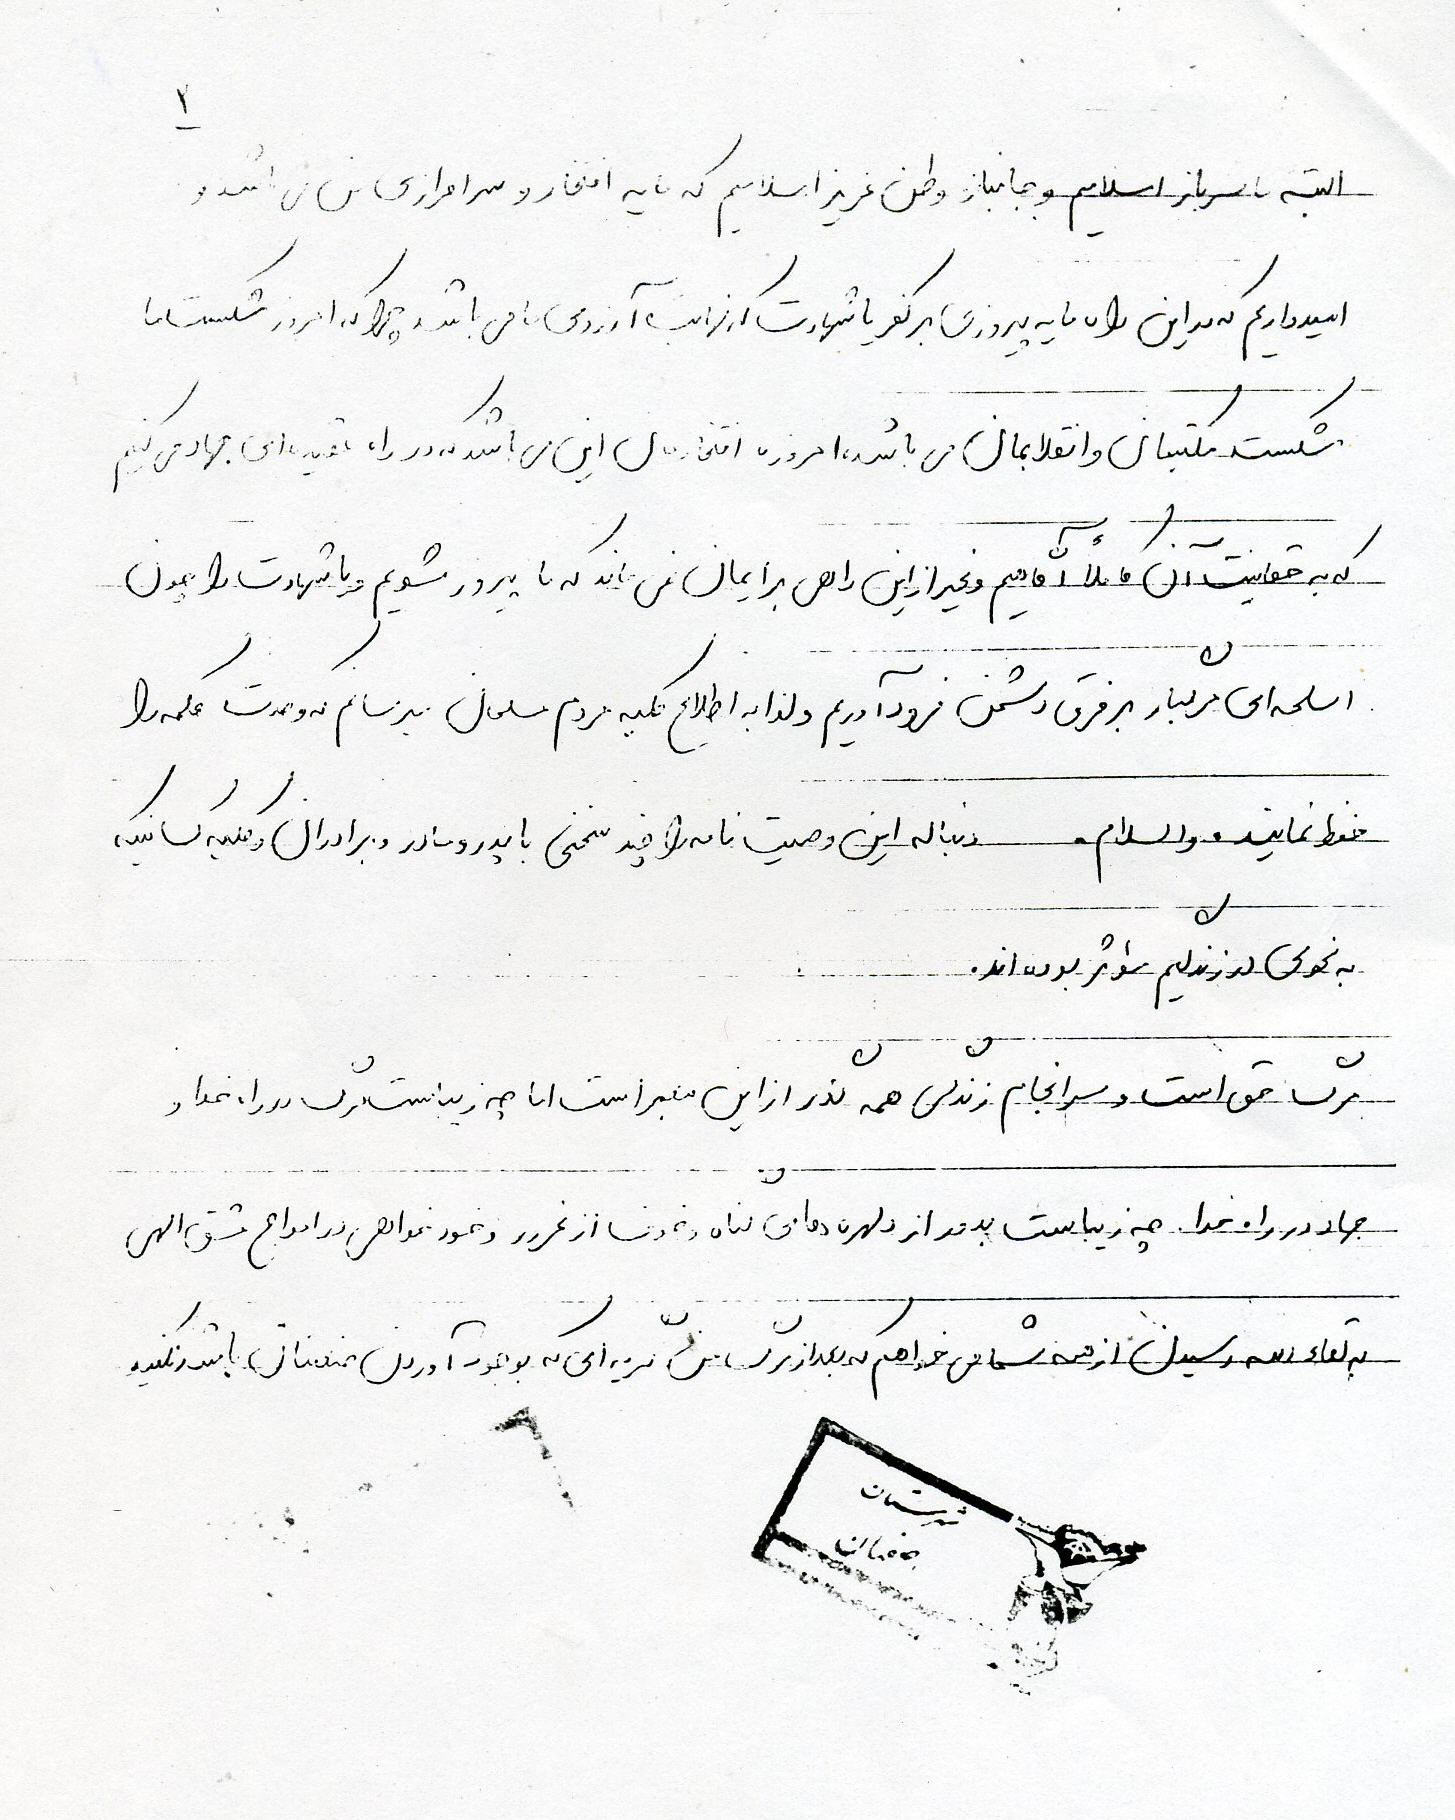 ۲
البته ما سرباز اسلامیم و جانباز وطن عزیز اسلامیم که مایه افتخار و سرافرازی من می باشد و
امیدواریم که در این راه یا به پیروزی بر کفر یا شهادت که نهایت آرزوی ما می باشد چرا که امروز شکست ما
شکست مکتبمان و انقلابمان می باشد، امروزه افتخارمان این می باشد که در راه عقیده ای جهاد می کنیم
که به حقانیت آن کاملاً آگاهیم و غیر از این راهی برایمان نمی ماند که یا پیروز مشویم و یا شهادت را چون
اسلحه ای مرگبار بر فرق دشمن فرود آوریم ولذا به اطلاع کلیه مردم مسلمان میرسانم که وحدت کلمه را
حفظ نمایند. والسلام. دنباله این وصیت نامه را چند سخنی با پدر و مادر و برادران و کلیه کسانیکه
به نحوی در زندگیم مؤثر بوده اند.
مرگ حق است و سرانجام زندگی همه گذر از این معبر است اما چه زیباست مرگ در راه خدا و
جهاد در راه خدا. چه زیباست بدور از دلهره های گناه و غرور و خود خواهی در امواج عشق الهی
به لقاء الله رسیدن از همه شما می خواهم که بعد از مرگ من گریه ای که بوجود آوردن باشد نکنید
شهرستان